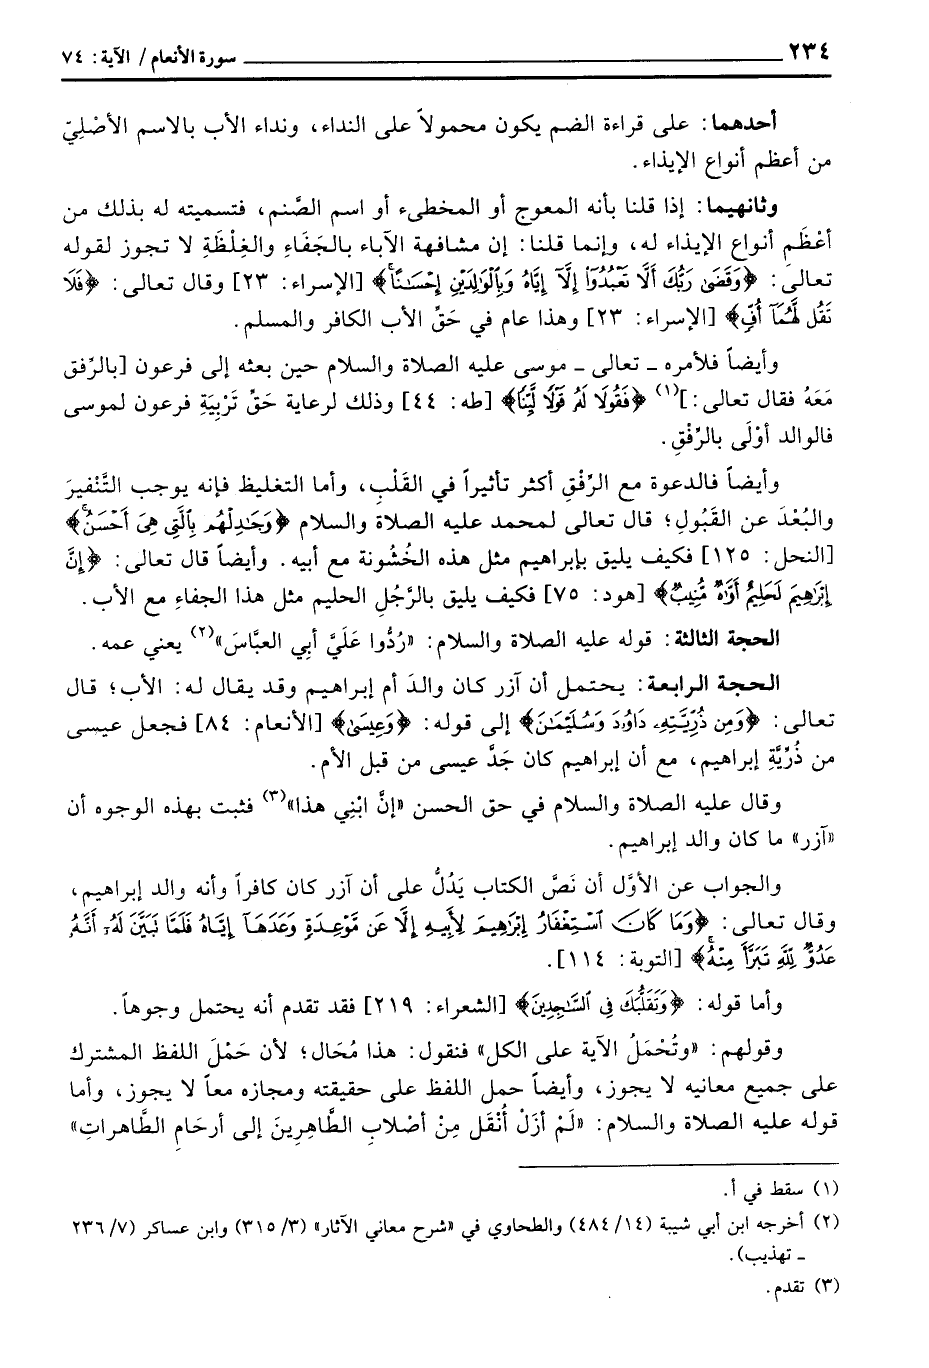 ٢٣٤ سورة الأنعام / الآية: ٧٤
أحدهما: على قراءة الضم يكون محمولاً على النداء، ونداء الأب بالاسم الأصْلِيّ
من أعظم أنواع الإيذاء.
وثانهيما: إذا قلنا بأنه المعوج أو المخطىء أو اسم الصَّنم، فتسميته له بذلك من
أعْظَم أنواع الإيذاء له، وإنما قلنا: إن مشافهة الآباء بالجَفَاءِ والغِلْظَةِ لا تجوز لقوله
تعالى: ﴿وَقَضَىٰ رَبُّكَ أَلَّا تَعْبُدُوٓا۟ إِلَّآ إِيَّاهُ وَبِٱلْوَٰلِدَيْنِ إِحْسَٰنًا﴾ [الإسراء: ٢٣] وقال تعالى: ﴿فَلَا
تَقُل لَّهُمَآ أُفٍّ﴾ [الإسراء: ٢٣] وهذا عام في حَقِّ الأب الكافر والمسلم.
وأيضاً فلأمره ـ تعالى ـ موسى عليه الصلاة والسلام حين بعثه إلى فرعون [بالرِّفق
مَعَهُ فقال تعالى:](١) ﴿فَقُولَا لَهُۥ قَوْلًا لَّيِّنًا﴾ [طه: ٤٤] وذلك لرعاية حَقِّ تَرْبِيَةِ فرعون لموسى
فالوالد أوْلَى بالرِّفْقِ.
وأيضاً فالدعوة مع الرِّفْقِ أكثر تأثيراً في القَلْبِ، وأما التغليظ فإنه يوجب التَّنْفيرَ
والبُعْدَ عن القَبُولِ؛ قال تعالى لمحمد عليه الصلاة والسلام ﴿وَجَٰدِلْهُم بِٱلَّتِى هِىَ أَحْسَنُ﴾
[النحل: ١٢٥] فكيف يليق بإبراهيم مثل هذه الخُشُونة مع أبيه. وأيضاً قال تعالى: ﴿إِنَّ
إِبْرَٰهِيمَ لَحَلِيمٌ أَوَّٰهٌ مُّنِيبٌ﴾ [هود: ٧٥] فكيف يليق بالرَّجُلِ الحليم مثل هذا الجفاءِ مع الأب.
الحجة الثالثة: قوله عليه الصلاة والسلام: «رُدُّوا عَلَيَّ أبي العبَّاسَ»(٢) يعني عمه.
الحجة الرابعة: يحتمل أن آزر كان والدَ أم إبراهيم وقد يقال له: الأب؛ قال
تعالى: ﴿وَمِن ذُرِّيَّتِهِۦ دَاوُۥدَ وَسُلَيْمَٰنَ﴾ إلى قوله: ﴿وَعِيسَىٰ﴾ [الأنعام: ٨٤] فجعل عيسى
من ذُرِّيَّةِ إبراهيم، مع أن إبراهيم كان جَدَّ عيسى من قبل الأم.
وقال عليه الصلاة والسلام في حق الحسن «إنَّ ابْنِي هذا»(٣) فثبت بهذه الوجوه أن
«آزر» ما كان والد إبراهيم.
والجواب عن الأوَّل أن نَصَّ الكتاب يَدُلُّ على أن آزر كان كافراً وأنه والد إبراهيم،
وقال تعالى: ﴿وَمَا كَانَ ٱسْتِغْفَارُ إِبْرَٰهِيمَ لِأَبِيهِ إِلَّا عَن مَّوْعِدَةٍ وَعَدَهَآ إِيَّاهُ فَلَمَّا تَبَيَّنَ لَهُۥٓ أَنَّهُۥ
عَدُوٌّ لِّلَّهِ تَبَرَّأَ مِنْهُ﴾ [التوبة: ١١٤].
وأما قوله: ﴿وَتَقَلُّبَكَ فِى ٱلسَّٰجِدِينَ﴾ [الشعراء: ٢١٩] فقد تقدم أنه يحتمل وجوهاً.
وقولهم: «وتُحْمَلُ الآية على الكل» فنقول: هذا مُحَال؛ لأن حَمْلَ اللفظ المشترك
على جميع معانيه لا يجوز، وأيضاً حمل اللفظ على حقيقته ومجازه معاً لا يجوز، وأما
قوله عليه الصلاة والسلام: «لَمْ أزَلْ أُنْقَل مِنْ أصْلابِ الطَّاهِرِينَ إلى أرحَامِ الطَّاهراتِ»
(١) سقط في أ.
(٢) أخرجه ابن أبي شيبة (١٤/ ٤٨٤) والطحاوي في «شرح معاني الآثار» (٣/ ٣١٥) وابن عساكر (٧/ ٢٣٦
ـ تهذيب).
(٣) تقدم.